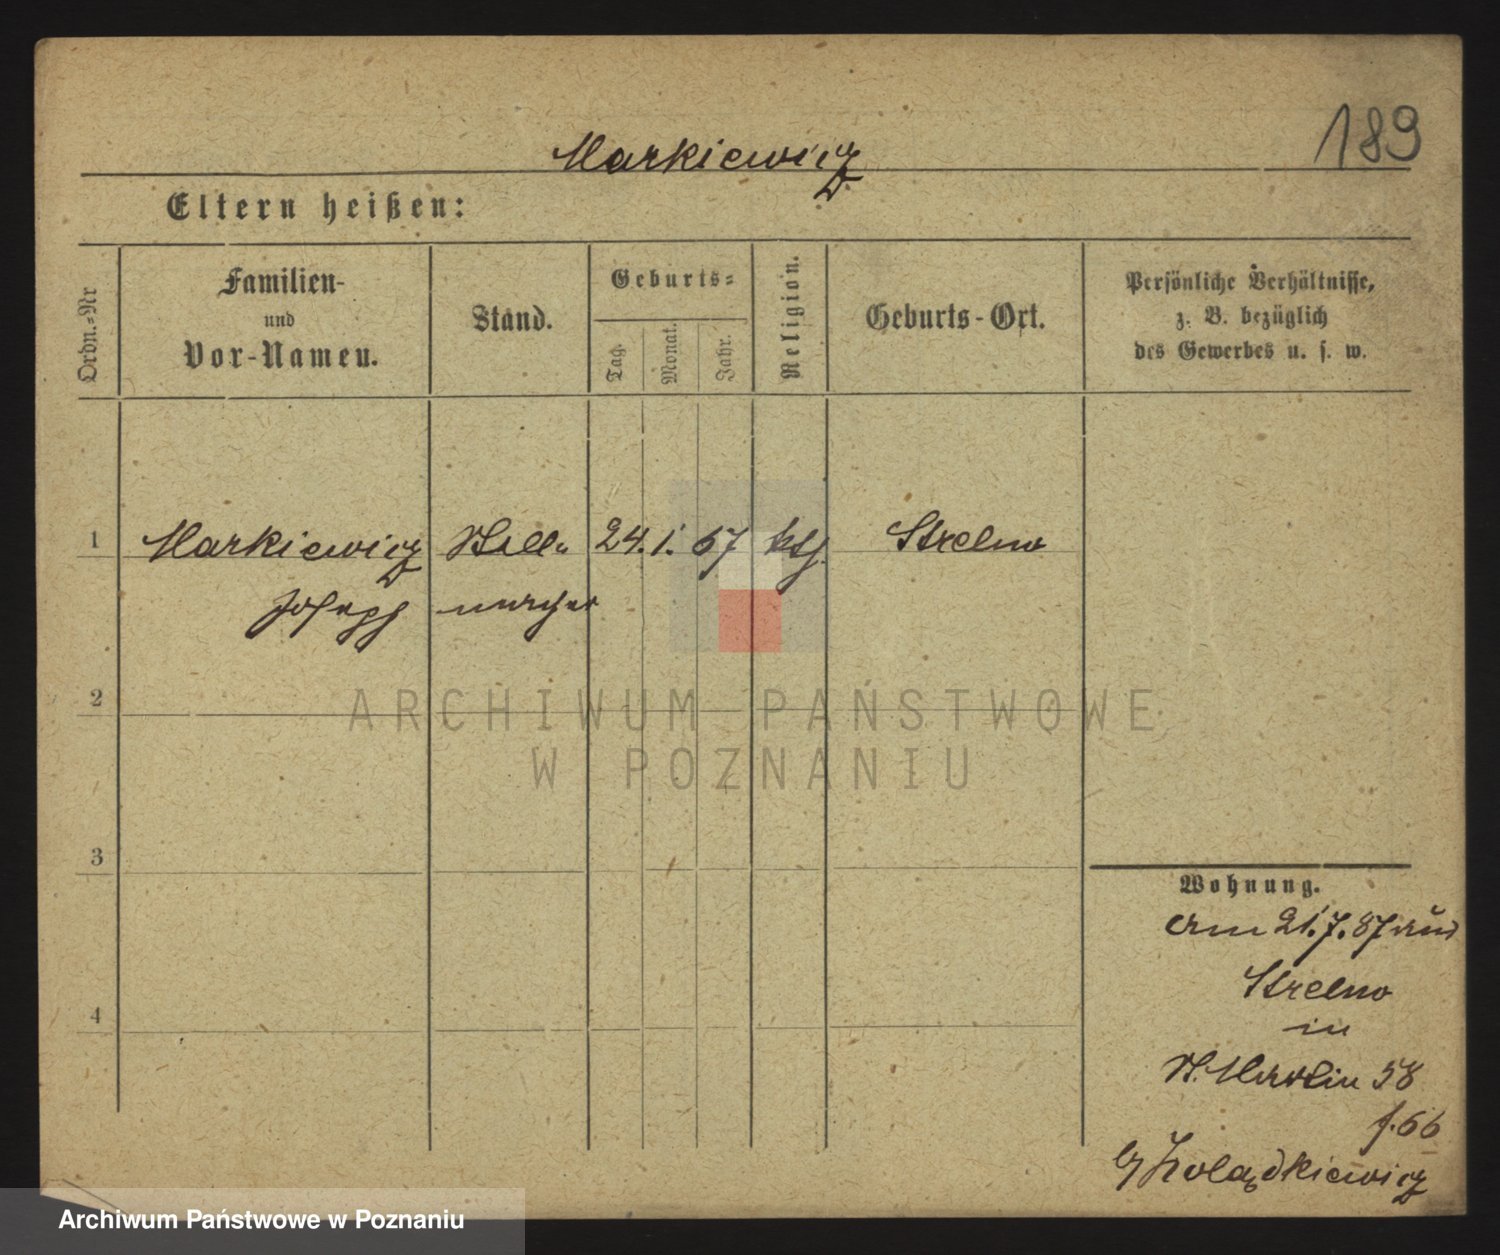 189
Markiewicz
Eltern heißen:
Ordn.-Nr
Familien-
und
Vor-Namen.
Stand.
Geburts-
Tag.
Monat.
Jahr.
Religion.
Geburts-Ort.
Persönliche Verhältnisse,
z. B. bezüglich
des Gewerbes u. s. w.
1 Markiewicz Stell- 24. 1. 67 kth. Strelno
Joseph macher
2
3
4
Wohnung.
am 21.7.87 aus
Strelno
in
St. Martin 58
f. 66
b/ Kolądkiewicz
ARCHIWUM PAŃSTWOWE
W POZNANIU
Archiwum Państwowe w Poznaniu